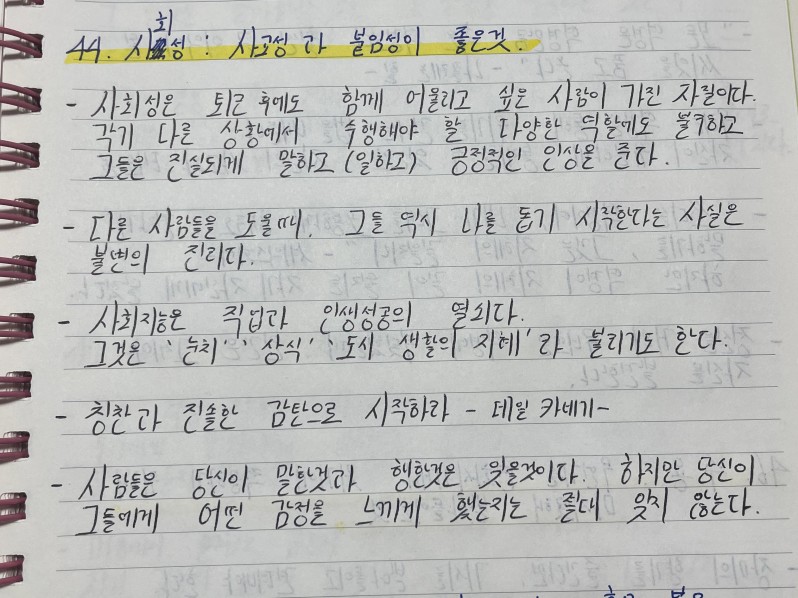 44. 사회성 : 사교성과 붙임성이 좋은것.
- 사회성은 퇴근 후에도 함께 어울리고 싶은 사람이 가진 자질이다.
각기 다른 상황에서 수행해야 할 다양한 역할에도 불구하고
그들은 진실되게 말하고 (일하고) 긍정적인 인상을 준다.
- 다른 사람들을 도울때, 그들 역시 나를 돕기 시작한다는 사실은
불변의 진리다.
- 사회지능은 직업과 인생성공의 열쇠다.
그것은 '눈치' '상식' '도시 생활의 지혜'라 불리기도 한다.
- 칭찬과 진솔한 감탄으로 시작하라 - 데일 카네기-
- 사람들은 당신이 말한것과 행한것은 잊을것이다. 하지만 당신이
그들에게 어떤 감정을 느끼게 했는지는 절대 잊지 않는다.